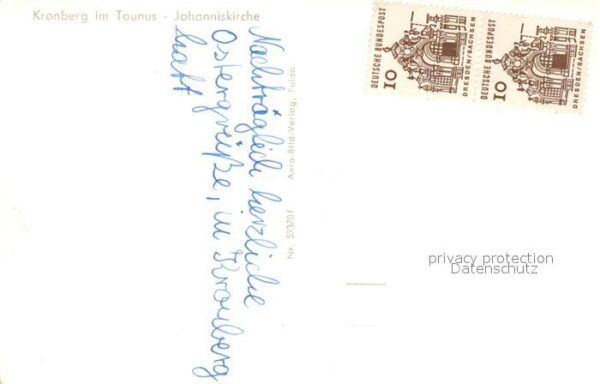 Kronberg im Taunus - Johanniskirche
Nachträglich herzliche
Ostergrüße, in Kronberg
haft
Nr. 52370f Aero-Bild-Verlag, Fulda
DEUTSCHE BUNDESPOST
10
DRESDEN/SACHSEN
DEUTSCHE BUNDESPOST
10
DRESDEN/SACHSEN
privacy protection
Datenschutz